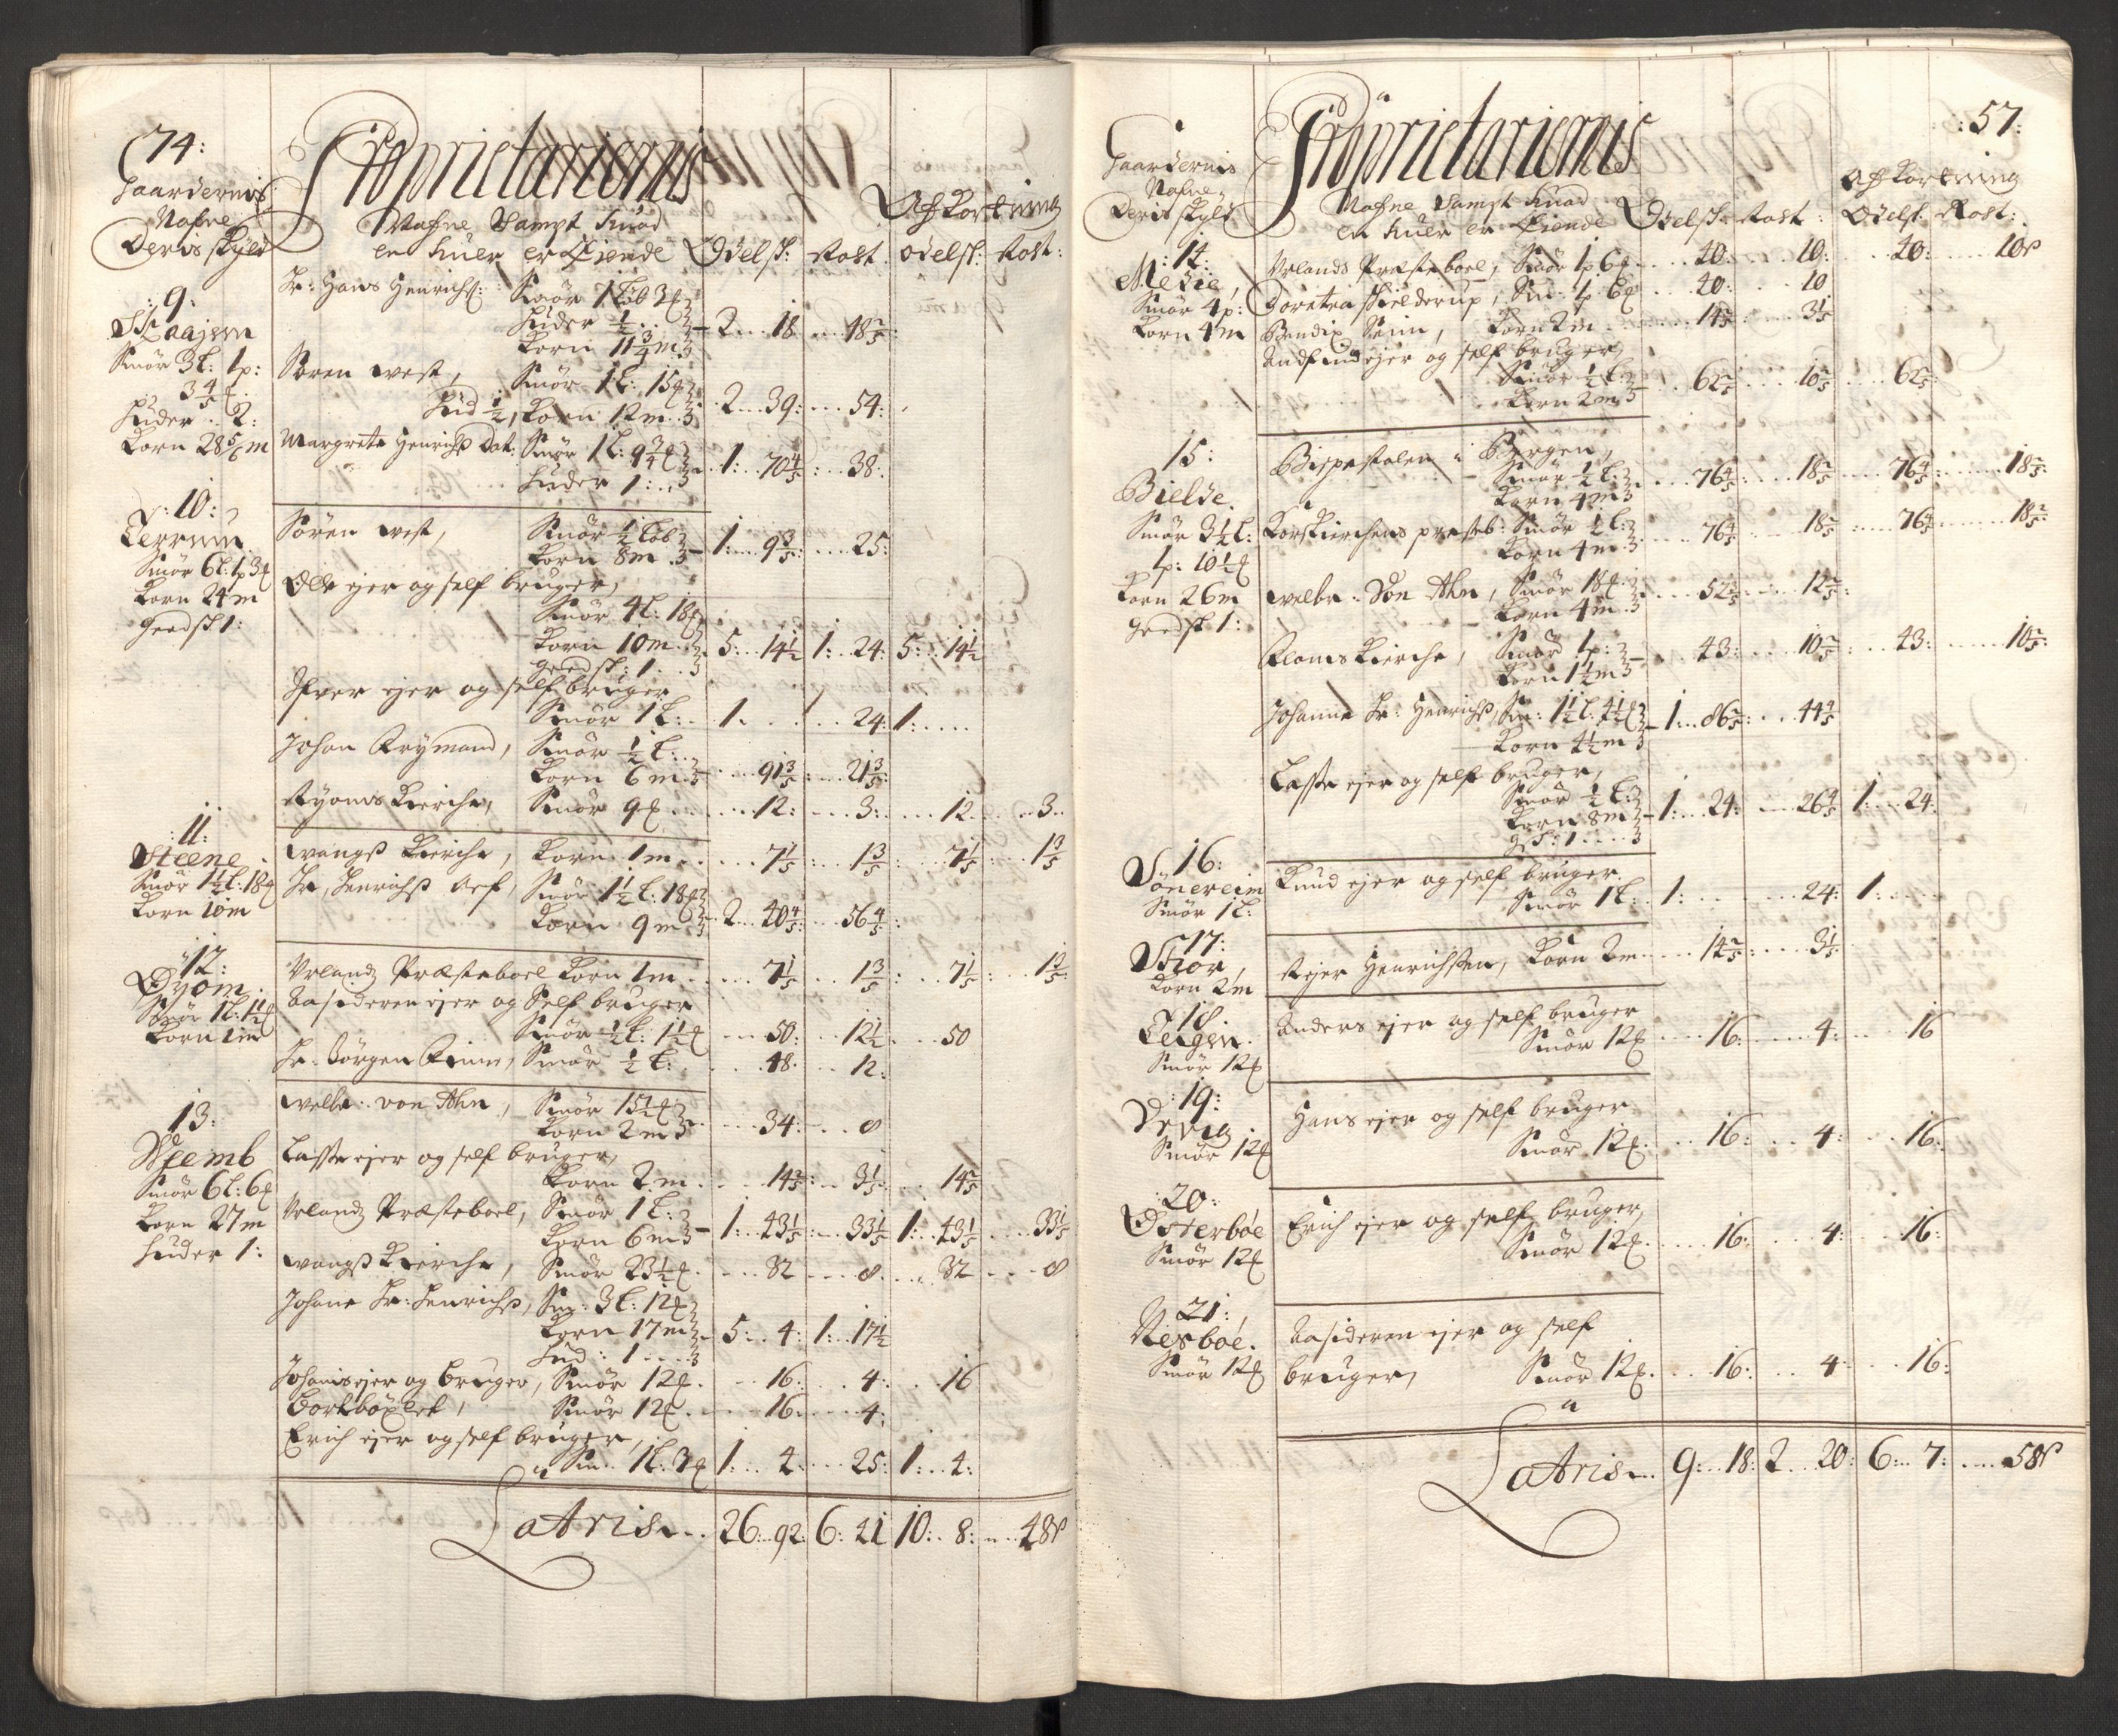 74:
Proprietariernis
Gaardernis
Nafne
Deris skyld
Nafne Sampt huad
en huer er Eiende
Odelsk: Rost:
Afkortning
Odelsk: Rost:
9:
Skaajem
Smör 3 L: 1 p:
3 4/5
Huder 2:
Korn 28 5/6 m
Hr: Hans Henrichs: Smör 1 Løb 3
Huder 1/2
Korn 11 3/4 m 2 18 18 2/5:
Sören west, Smör 1 L: 15
Hud 1/2, Korn 12 m 2 39: 54:
Margrete Henrichs Dat: Smör 1 L: 9 3/4
Huder 1: 1: 70 4/5: 38:
10:
Terrum
Smör 6 L: 1 p 3
Korn 24 m
Geedsk 1:
Sören west, Smör 1/2 Løb
Korn 8 m 1: 9 3/5: 25:
Ole ejer og self bruger,
Smör 4 L: 18
Korn 10 m
Geedsk: 1 5: 14 1/2 1: 24: 5: 14 1/2
Ifver ejer og self bruger
Smör 1 L: 1. 24: 1:
Johan Frÿmand, Smör 1/2 L:
Korn 6 m 91 3/5: 21 3/5:
Rÿoms Kierche, Smör 9 12: 3: 12 3
11:
Steene
Smör 1 1/2 L: 18
Korn 10 m
wangs Kierche, Korn 1 m 7 1/5: 1 3/5: 7 1/5: 1 3/5
Hr, Henrichs Arf, Smör 1 1/2 L: 18
Korn 9 m 2 40 4/5: 56 4/5:
12:
Rÿom
Smör 1 L: 1 1/2
Korn 1 m
Urlands Præsteboel Korn 1 m 7 1/5: 1 3/5: 7 1/5: 1 3/5:
Besideren ejer og Self bruger
Smör 1/2 L: 1 1/2 50: 12 1/2 50
Hr: Jörgen Finne, Smör 1/2 L: 48. 12:
13:
WSemb
Smör 6 L: 6
Korn 27 m
Huder 1:
welbr: von Ahn, Smör 15 1/2
Korn 2 m 34: 8
Lasse ejer og self bruger,
Korn 2 m 14 2/5: 3 1/5 14 2/5
Urlands Præsteboel, Smör 1 L:
Korn 6 m 1: 43 1/5: 33 1/5 1: 43 1/5 33 1/5
wangs Kierche, Smör 23 1/2 32 8 32 8
Johane Hr: Henrichs, Sm: 3 L: 12
Korn 17 m
Hud: 1 5: 4: 1: 17 1/2
Johanis ejer og bruger, Smör 12 16: 4: 16
Bortböxlet, Smör 12 16: 4:
Erich ejer og self bruger,
Sm: 1 L: 3 1: 4: 25: 1: 4:
Latris 26: 92: 6: 21 10: 8: 48 s
57:
Proprietariernis
Gaardernis
Nafne,
Deris skyld
Nafne Sampt huad
en huer er Eiende
Odelsk: Rost:
Afkortning
Odelsk: Rost:
14:
Medie,
Smör 4 p:
Korn 4 m
Urlands Præsteboel, Smör 1 p 6 40: 10: 40: 10 s
Doretea Hielderup, Sm: 1 p 6 40: 10
Bendix Seim, Korn 2 m 14 2/5 3 1/5
Andfind ejer og self bruger,
Smör 1/2 L:
Korn 2 m 62 2/5 10 2/5 62 2/5
15:
Bielde.
Smör 3 1/2 L:
1 p: 10 1/2
Korn 26 m
Geedsk 1:
Bispestolen i Bergen,
Smör 1/2 L:
Korn 4 m 76 4/5: 18 2/5 76 4/5: 18 2/5:
Korskierchens præsteb: Smör 1/2 L:
Korn 4 m 76 4/5 18 2/5 76 4/5 18 2/5:
welbr: Von Ahn, Smör 18
Korn 4 m 52 4/5 12 2/5:
Floms Kierche, Smör 1 p:
Korn 1 1/2 m 43: 10 2/5: 43: 10 2/5:
Johanne Hr: Henrichs, Sm: 1 1/2 L: 4 1/2
Korn 4 1/2 m 1: 86 2/5: 44 4/5
Lasse ejer og self bruger,
Smör 1/2 L:
Korn 8 m
gsk: 1 1: 24: 26 4/5 1: 24:
16:
Sönereim
Smör 1 L:
Knud ejer og self bruger.
Smör 1 L: 1: 24: 1:
17:
Skior,
Korn 2 m
Rejer Henrichssen, Korn 2 m 14 2/5: 3 1/5:
18:
Teigen.
Smör 12
Anders ejer og self bruger
Smör 12 16: 4: 16
19:
Dyrvig.
Smör 12
Hans ejer og self bruger
Smör 12 16: 4: 16:
20:
Österböe
Smör 12
Erich ejer og self bruger,
Smör 12 16: 4: 16:
21:
Nesböe.
Smör 12
Besideren ejer og self
bruger, Smör 12 16: 4 16:
Latris 9: 18: 2 20: 6: 7: 58 s